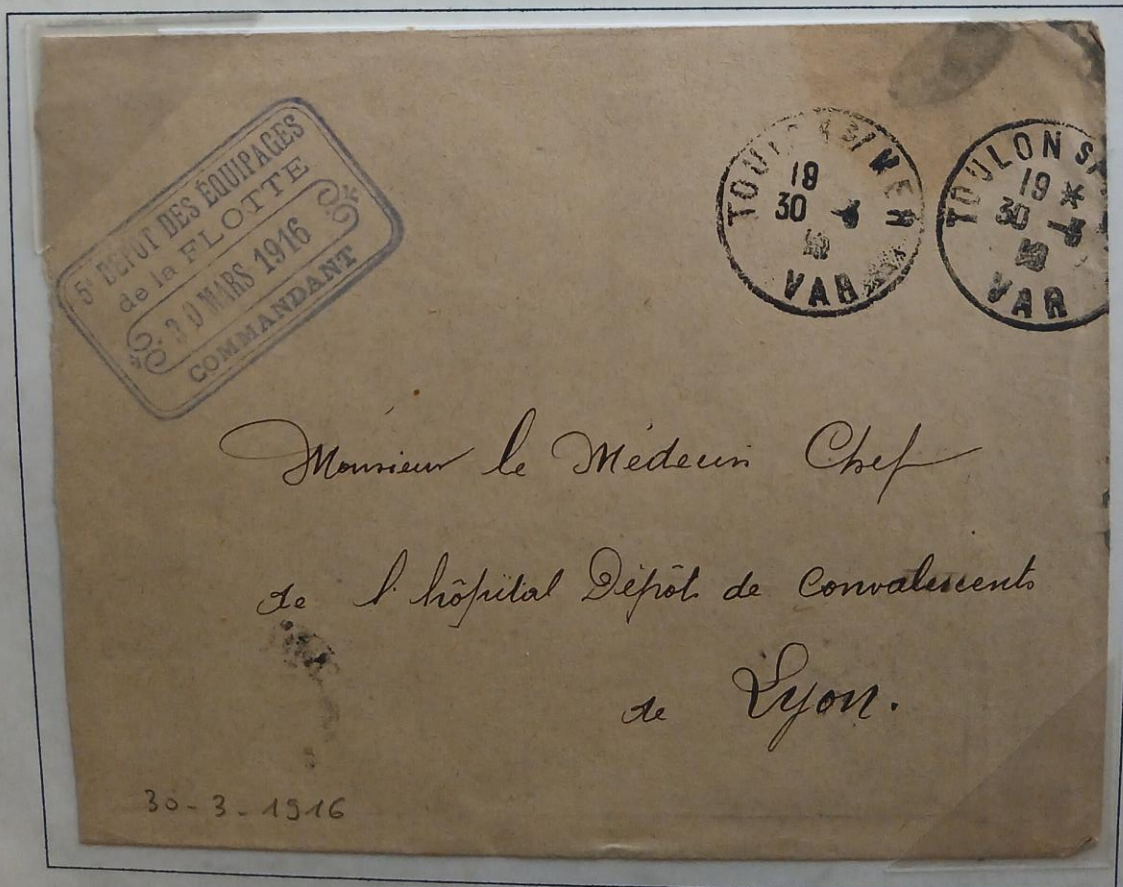 5e DÉPÔT DES ÉQUIPAGES
de la FLOTTE
30 MARS 1916
COMMANDANT
TOULON S/ MER
18
30 -3
VAR
TOULON S/
19 *
30 -3
VAR
Monsieur le Médecin Chef
de l'hôpital Dépôt de Convalescents
de Lyon.
30-3-1916